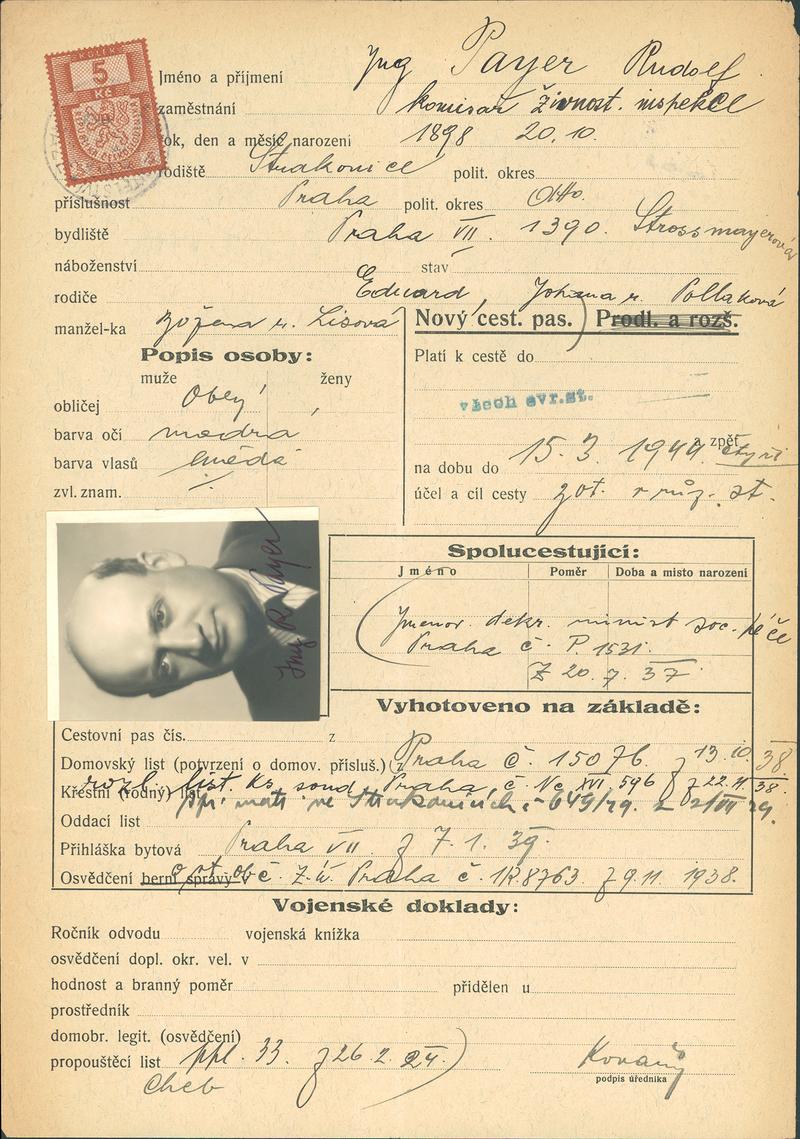 KOLEK
5
Kč
Jméno a příjmení Ing Payer Rudolf
zaměstnání komisař živnost. inspekce
ok, den a měsíc narození 1898 20.10.
rodiště Strakonice polit. okres
příslušnost Praha polit. okres
bydliště Praha VII. 1390. Strossmayerová
náboženství stav
rodiče Eduard, Johana r. Pollaková
manžel-ka Božena r. Lisová
Nový cest. pas. Prodl. a rozš.
Popis osoby:
muže ženy
obličej Oblý
barva očí modrá
barva vlasů hnědá
zvl. znam. ./.
Platí k cestě do
všech evr. st.
a zpět
na dobu do 15. 3. 1944 čtyři
účel a cíl cesty zot. v růz. st.
Ing R Payer
Spolucestující:
Jméno Poměr Doba a místo narození
Jmenov. dekr. minist soc. péče
Praha č. P. 1531.
Z 20. 7. 37
Vyhotoveno na základě:
Cestovní pas čís. z
Domovský list (potvrzení o domov. přísluš.) (z Praha č. 15076. z 13. 10. 38
rozl. list. Ks. soud Praha, č. Nc XVI. 596 z 22. 11. 38.
Křestní (rodný) list
ve Strakonicích č 649/29. z 2/VII 29.
Oddací list
Přihláška bytová Praha VII z 7. 1. 39.
Osvědčení berní správy v o st. obč. Z. ú. Praha č. 8763 z 9. 11. 1938.
Vojenské doklady:
Ročník odvodu vojenská knížka
osvědčení dopl. okr. vel. v
hodnost a branný poměr přidělen u
prostředník
domobr. legit. (osvědčení)
propouštěcí list ppl. 33. z 26. 2. 24.
Cheb
podpis úředníka